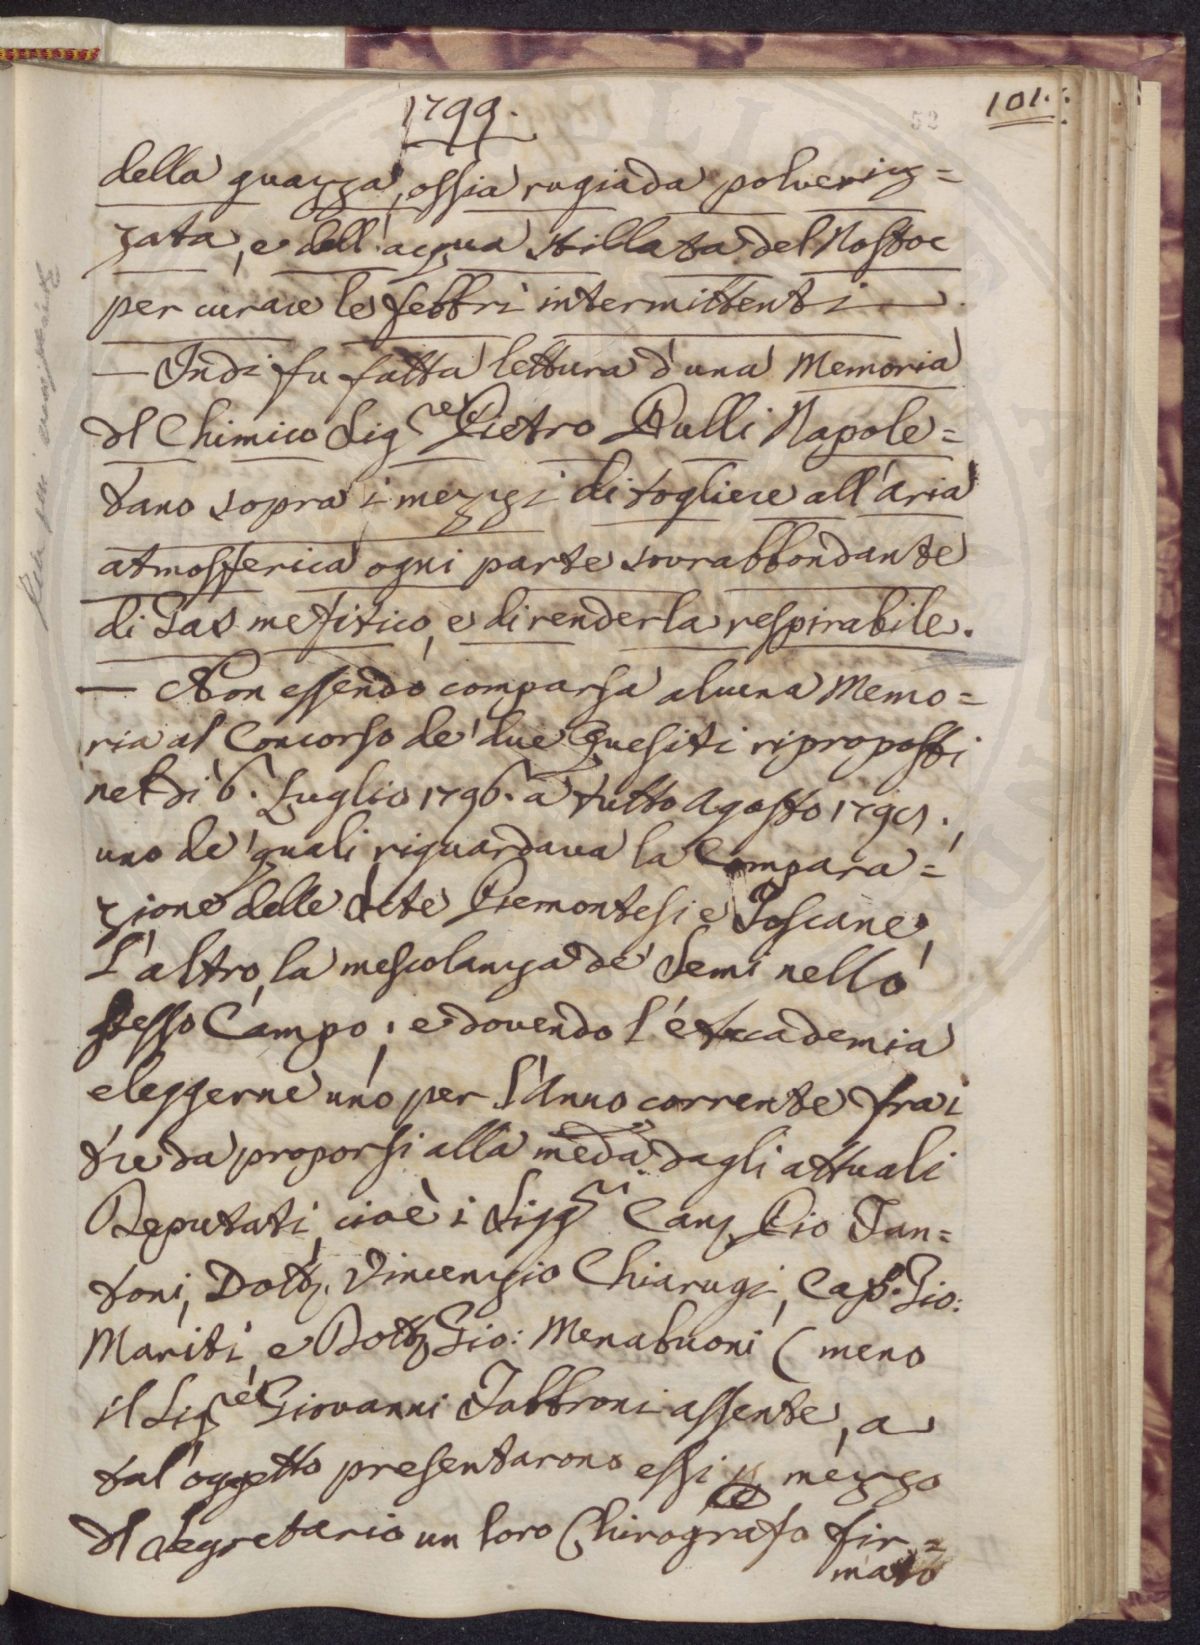 1799.
52
101.
della guazza, ossia rugiada polveriz=
zata, e dell'acqua stillata del Nostoc
per curare le febbri intermittenti
— Indi fu fatta lettura d'una Memoria
del Chimico Sig.re Pietro Pulli Napole=
tano sopra i mezzi di togliere all'aria
atmosferica ogni parte sovrabbondante
di Gas mefitico, e di renderla respirabile.
— Non essendo comparsa alcuna Memo=
ria al Concorso de' due Quesiti riproposti
nel dì 6. Luglio 1796. a tutto Agosto 1797.,
uno de' quali riguardava la Compara=
zione delle Sete Piemontesi e Toscane,
L'altro, la mescolanza de' Semi nello
stesso Campo; e dovendo l'Accademia
eleggerne uno per l'Anno corrente fra i
tre da proporsi alla meda. dagli attuali
Deputati, cioè i Sigg.ri Can. Pio Fan=
toni, Dott. Vincenzio Chiarugi, Cap. Gio:
Mariti, e Dott. Gio: Menabuoni (meno
il Sig.re Giovanni Fabbroni assente, a
tal'oggetto presentarono essi p mezzo
del Segretario un loro Chirografo fir=
mato